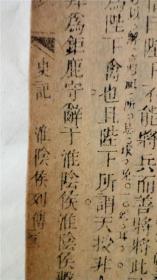 下不能將兵而善將將此
為陛下禽也且陛下所謂天授非人
為鉅鹿守辭于淮陰侯淮陰侯
史記　淮陰侯列傳